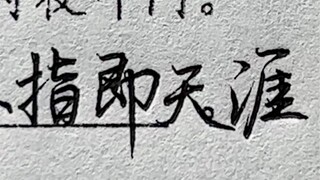 指即天涯